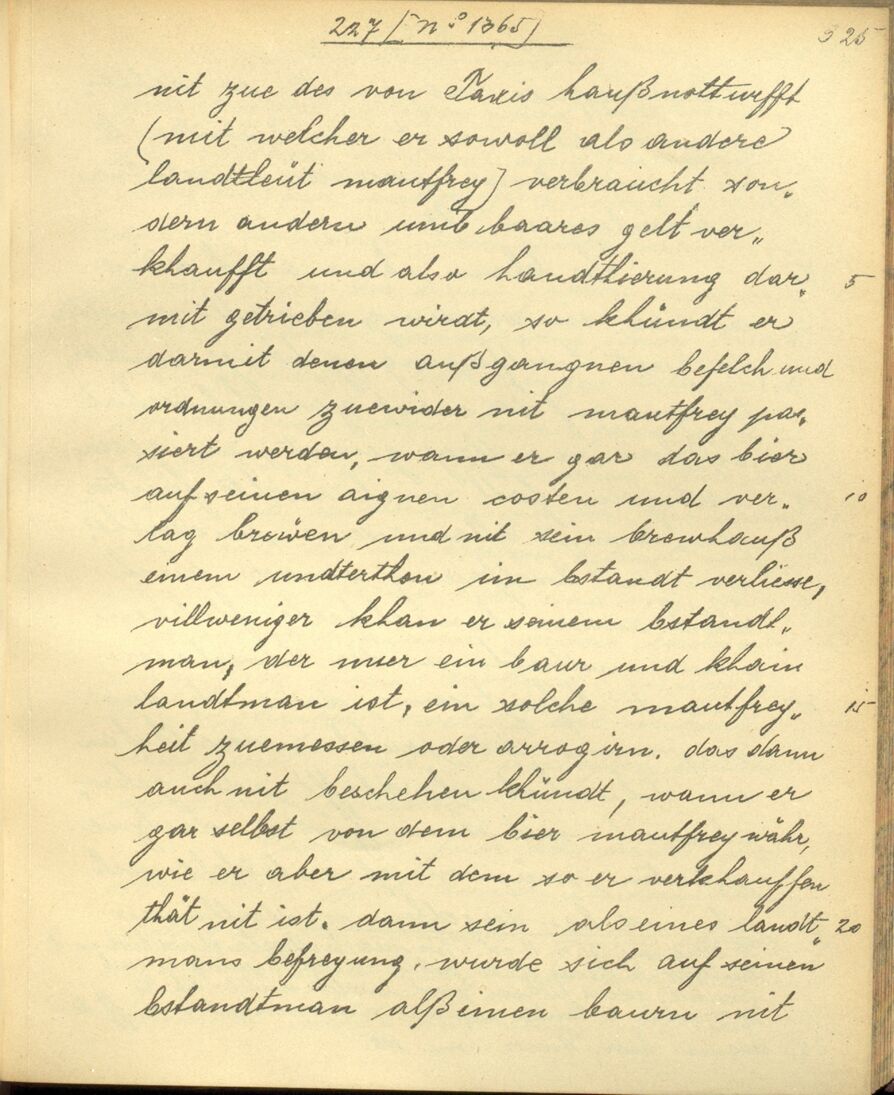 227 [n.o 1365]
325
nit zue des von Taxis haußnotturfft
(mit welcher er sowoll als andere
landtleüt mautfrey) verbraucht son„
dern andern umb baares gelt ver„
khaufft und also handthierung dar„ 5
mit getrieben wirdt, so khündt er
darmit denen außgangnen befelch und
ordnungen zuewider nit mautfrey pas„
siert werden, wann er gar das bier
auf seinen aignen costen und ver„ 10
lag brewen und nit sein brewhauß
einem undterthon im bstandt verliesse,
villweniger khan er seinem bstandt„
man, der nuer ein baur und khain
landtman ist, ein solche mautfrey„ 15
heit zuemessen oder arrogirn. das dann
auch nit beschehen khündt, wann er
gar selbst von dem bier mautfrey währ,
wie er aber mit dem so er verkhauffen
thät nit ist. dann sein als eines landt„ 20
mans befreyung, wurde sich auf seinen
bstandtman alß einen baurn nit